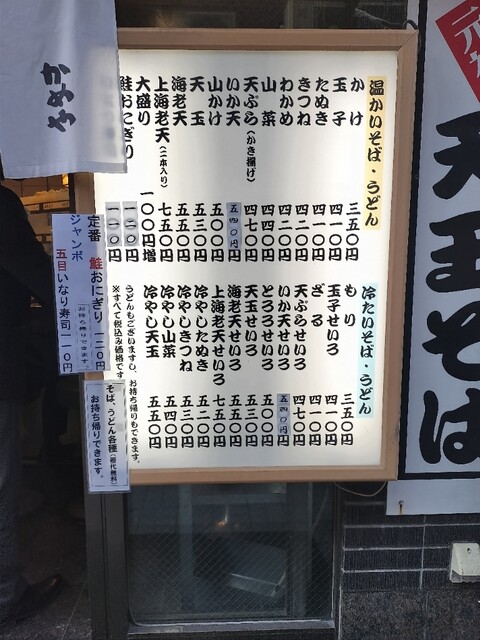 元
天玉そば
温かいそば・うどん
かけ 三五〇円
玉子 四一〇円
たぬき 四一〇円
きつね 四二〇円
わかめ 四二〇円
山菜 四四〇円
天ぷら(かき揚げ) 四七〇円
いか天 五四〇円
山かけ 五〇〇円
天玉 五三〇円
海老天 五五〇円
上海老天(二本入り) 七五〇円
大盛り 一〇〇円増
鮭おにぎり 一二〇円
一一〇円
冷たいそば・うどん
もり 三五〇円
玉子せいろ 四一〇円
ざる 四一〇円
天ぷらせいろ 四七〇円
いか天せいろ 五四〇円
とろろせいろ 五〇〇円
天玉せいろ 五三〇円
海老天せいろ 五五〇円
上海老天せいろ 七五〇円
冷やしたぬき 五二〇円
冷やしきつね 五三〇円
冷やし山菜 五四〇円
冷やし天玉 五五〇円
うどんもございますし、お持ち帰りもできます。
※すべて税込み価格です
定番 鮭おにぎり 一二〇円
ジャンボ 五目いなり寿司 一一〇円
お持ち帰りできます。
そば、うどん各種(箱代無料)
お持ち帰りできます。